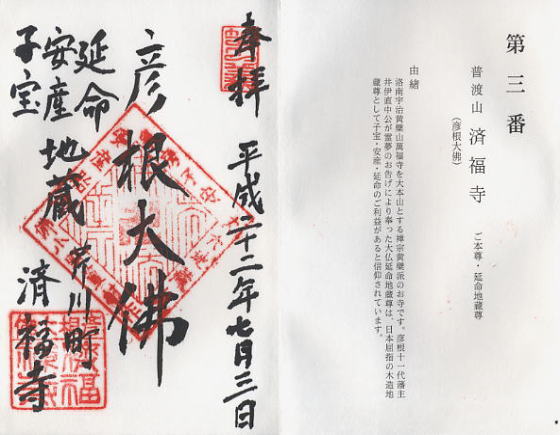 第三番
普渡山 済福寺 ご本尊・延命地蔵尊
(彦根大佛)
由緒
洛南宇治黄檗山萬福寺を大本山とする禅宗黄檗派のお寺です。彦根十一代藩主
井伊直中公が霊夢のお告げにより奉った大仏延命地蔵尊は、日本屈指の木造地
蔵尊として子宝・安産・延命のご利益があると信仰されています。
奉拝 平成二十二年七月三日
彦根大佛
延命
安産 地蔵 芹川町
子宝
済福寺